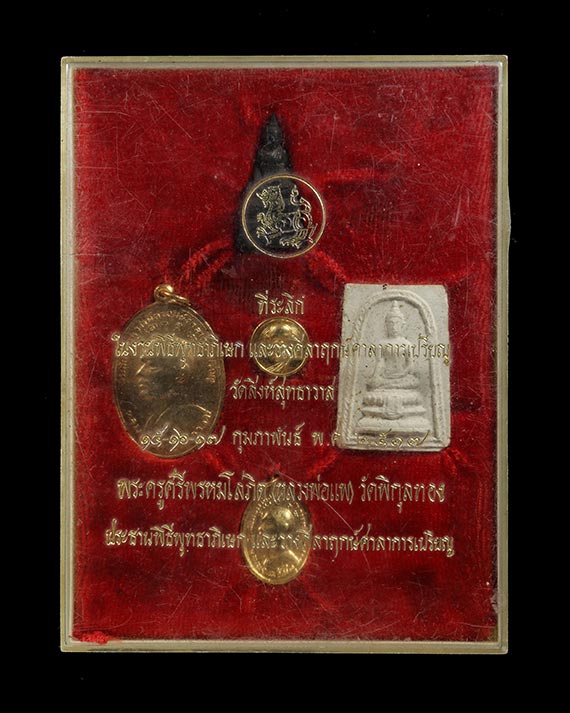 ที่ระลึก
ในงานพิธีพุทธาภิเษก และวางศิลาฤกษ์ศาลาการเปรียญ
วัดสิงห์สุทธาวาส
๑๕-๑๖-๑๗ กุมภาพันธ์ พ.ศ. ๒๕๑๗
พระครูศรีพรหมโสภิต (หลวงพ่อแพ) วัดพิกุลทอง
ประธานพิธีพุทธาภิเษก และวางศิลาฤกษ์ศาลาการเปรียญ